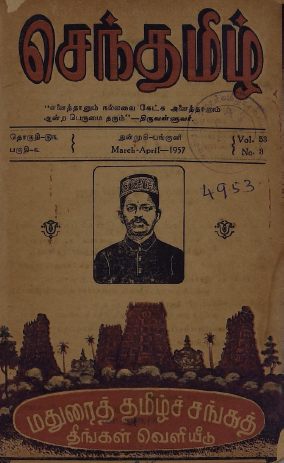 செந்தமிழ்
"எனைத்தானும் நல்லவை கேட்க அனைத்தானும்
ஆன்ற பெருமை தரும்"—திருவள்ளுவர்.
தொகுதி-
பகுதி-
March-April—1957
Vol. 53
No. 8
4953
மதுரைத் தமிழ்ச் சங்கத்
திங்கள் வெளியீடு